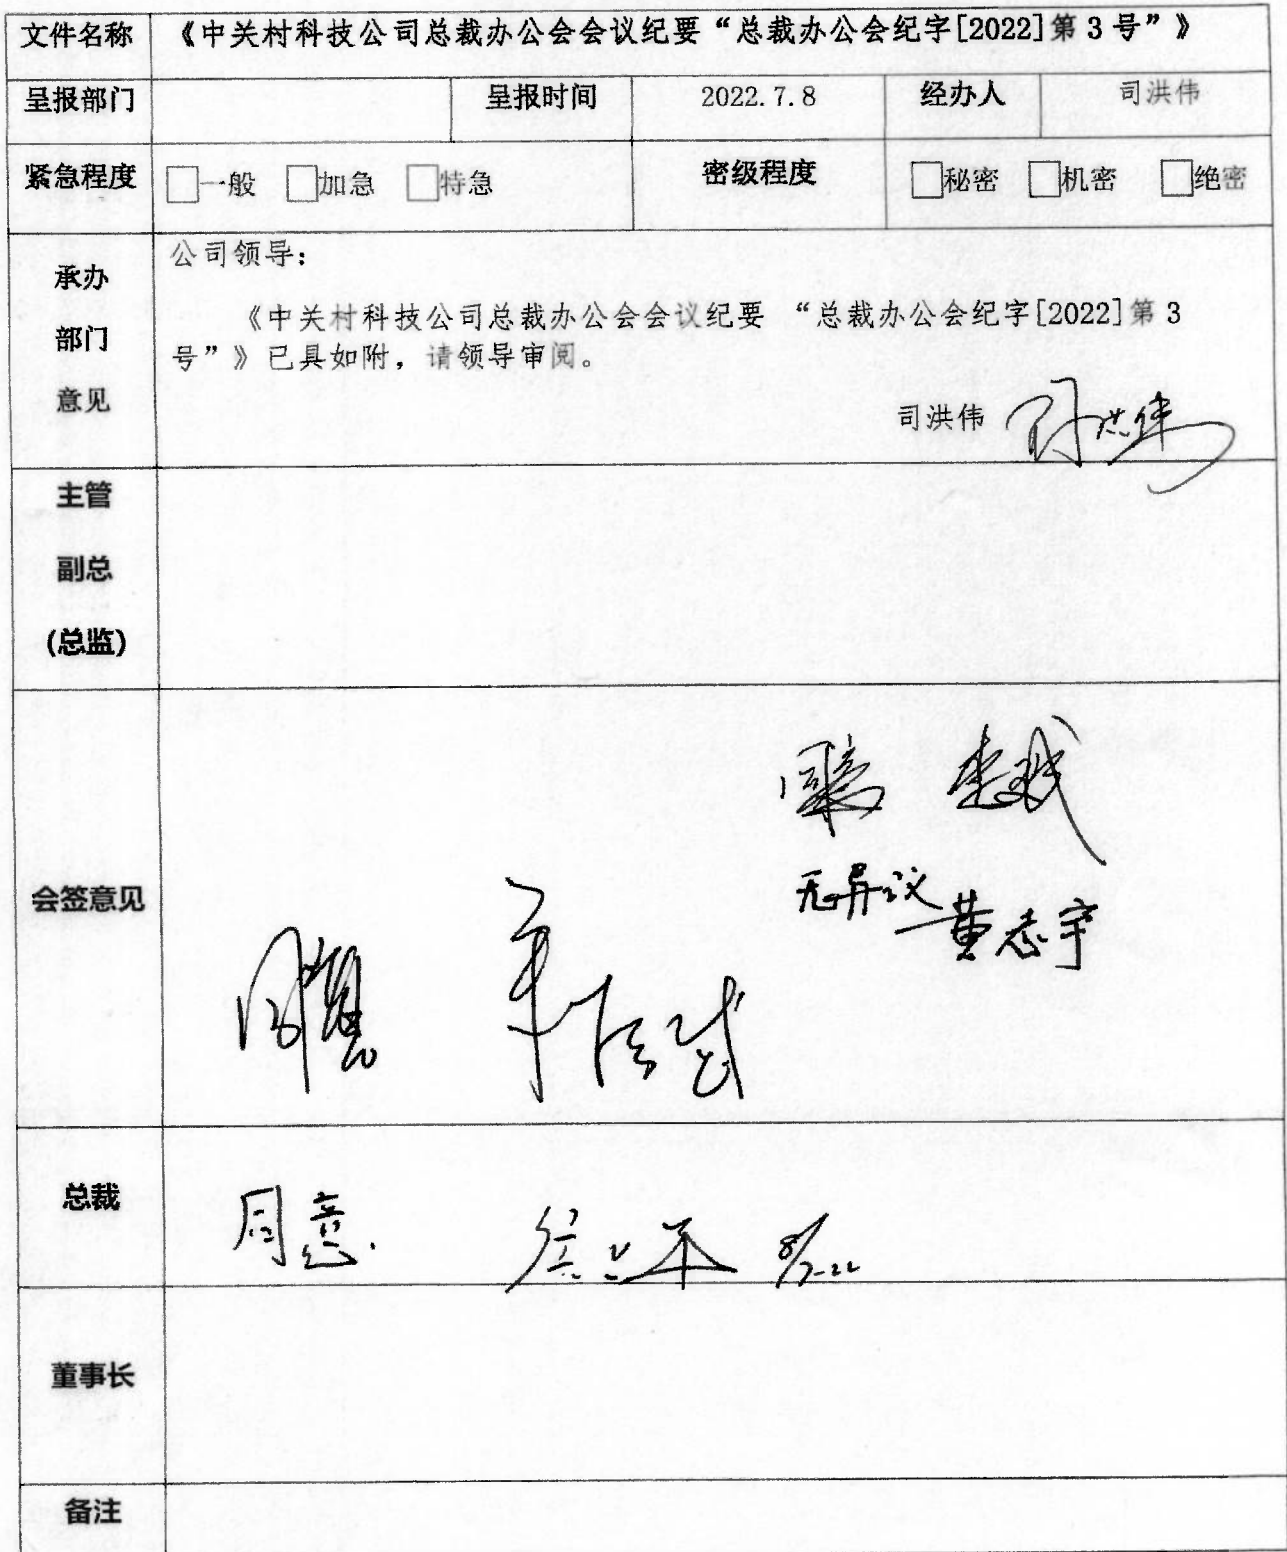 文件名称 《中关村科技公司总裁办公会会议纪要“总裁办公会纪字[2022]第3号”》
呈报部门 呈报时间 2022.7.8 经办人 司洪伟
紧急程度 □一般 □加急 □特急 密级程度 □秘密 □机密 □绝密
承办
部门
意见
公司领导：
《中关村科技公司总裁办公会会议纪要 “总裁办公会纪字[2022]第3
号”》已具如附，请领导审阅。
司洪伟 司洪伟
主管
副总
(总监)
会签意见
同意
无异议 黄志宇
同意
总裁
同意. 8/7-22
董事长
备注